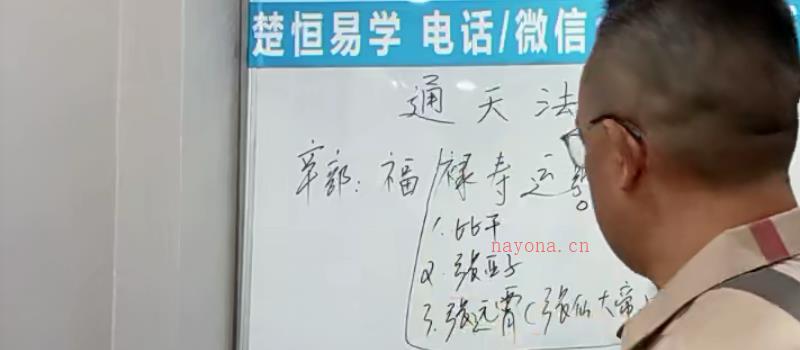 楚恒易学 电话/微信
通天法
宰部：福禄寿运
1.比干
nayona.cn
2.张亚子
3.张远霄（张仙大帝